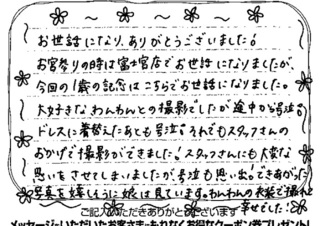 お世話になり、ありがとうございました!
お宮参りの時は富士宮店でお世話になりましたが、
今回の1歳の記念はこちらでお世話になりました。
大好きなわんわんとの撮影でしたが途中から号泣。
ドレスに着替えたあとも号泣。それでもスタッフさんの
おかげで撮影ができました!スタッフさんにも大変な
思いをさせてしまいましたが号泣も思い出。できあがった
写真を嬉しそうに娘は見ています。わんわんの衣装で撮れて
幸せでした!
ご記入いただきありがとうございます
メッセージいただいたお客さまにもれなくお得なクーポン券プレゼント!